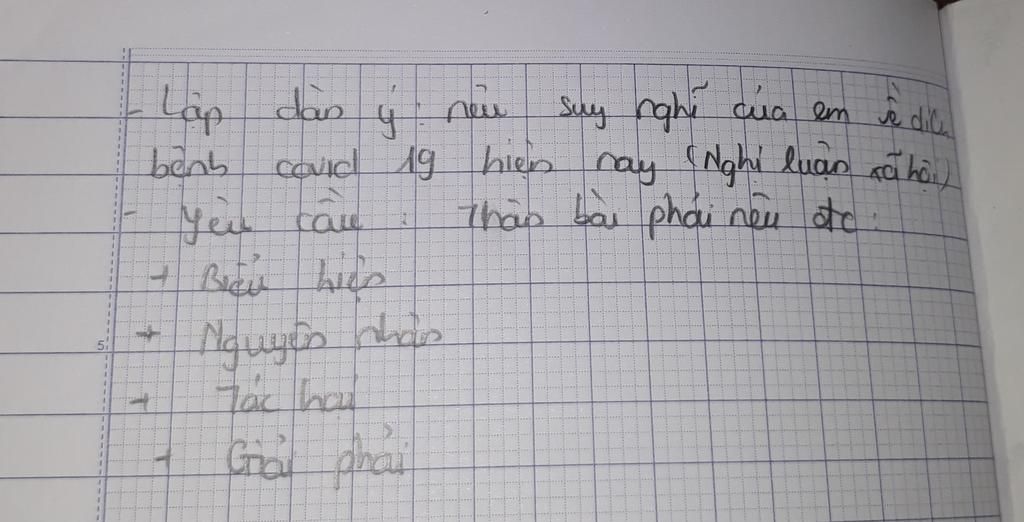 - Lập dàn ý: nêu suy nghĩ của em về dịch
bệnh covid 19 hiện nay (Nghị luận xã hội)
- Yêu cầu: Thân bài phải nêu đc:
+ Biểu hiện
5
+ Nguyên nhân
+ Tác hại
+ Giải pháp